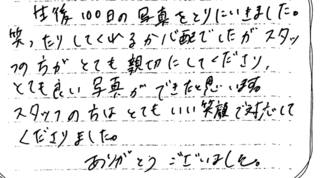 生後100日の写真をとりにいきました。
笑ったりしてくれるか心配でしたがスタッ
フの方がとても親切にしてくださり、
とても良い写真ができたと思います。
スタッフの方はとてもいい笑顔で対応して
くださりました。
ありがとうございました。